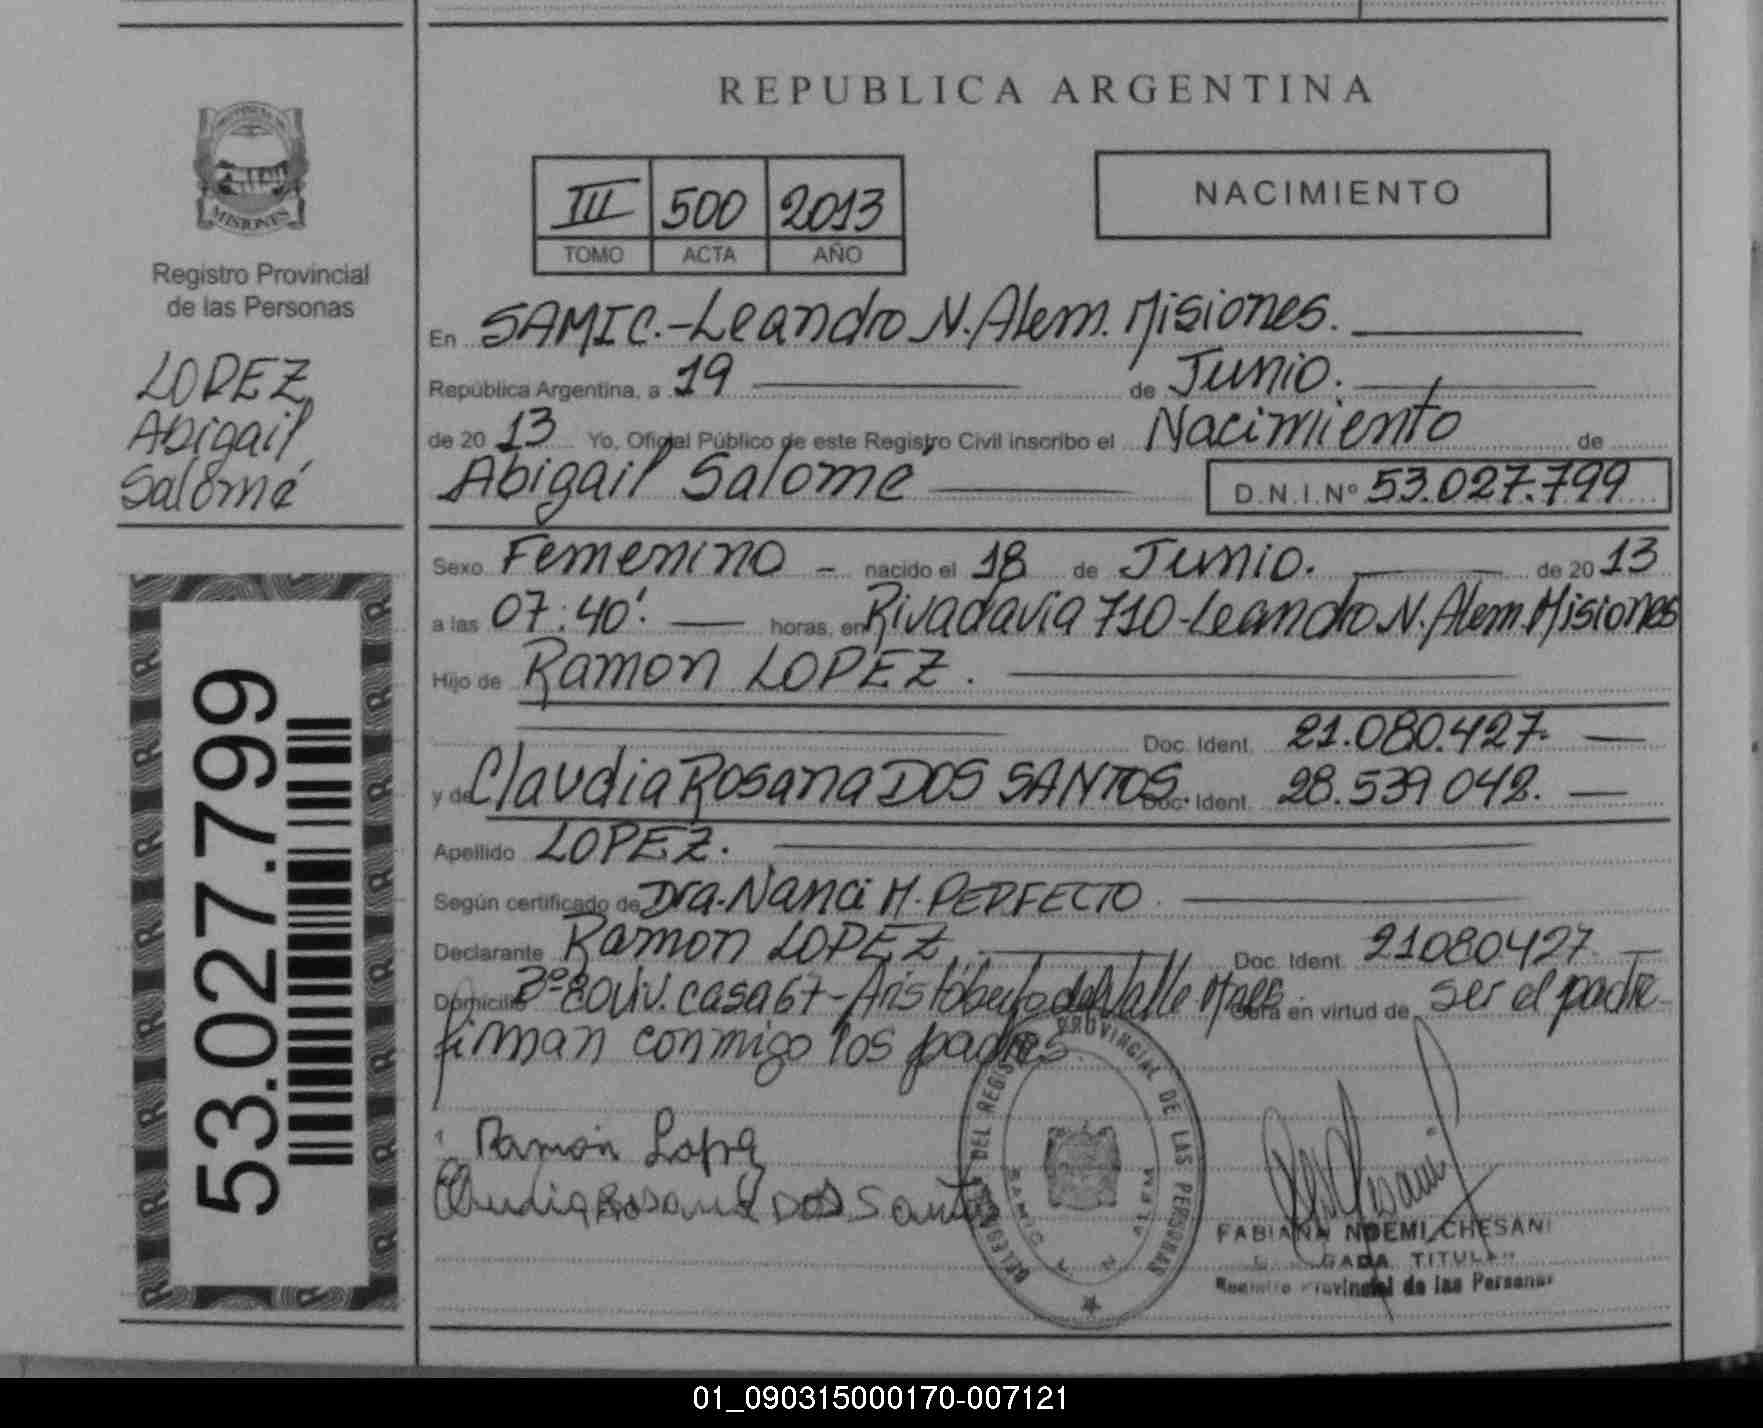 REPUBLICA ARGENTINA
PROVINCIA DE
MISIONES
Registro Provincial
de las Personas
LOPEZ,
Abigail
Salomé
53.027.799
III 500 2013
TOMO ACTA AÑO
NACIMIENTO
En SAMIC.-Leandro N. Alem. Misiones.
República Argentina, a 19 de Junio.
de 20 13 Yo, Oficial Público de este Registro Civil inscribo el Nacimiento de
Abigail Salomé D.N.I.Nº 53.027.799
Sexo Femenino - nacido el 18 de Junio. de 20 13
a las 07:40'. horas, en Rivadavia 710-Leandro N. Alem. Misiones
Hijo de Ramon LOPEZ.
Doc. Ident. 21.080.427.
y de Claudia Rosana DOS SANTOS. Doc. Ident. 28.539.042.
Apellido LOPEZ.
Según certificado de Dra. Nanci M. PERFECTO.
Declarante Ramon LOPEZ Doc. Ident. 21080427.
Domicilio Bº 80 Viv. casa 67-Aristóbulo del Valle Mnes. Obra en virtud de ser el padre
firman conmigo los padres.
Ramon Lopez
Claudia Rosana Dos Santos
DEL REGISTRO PROVINCIAL DE LAS PERSONAS
SAMIC L. N. ALEM
FABIANA NOEMI CHESANI
DELEGADA TITULAR
Registro Provincial de las Personas
01_090315000170-007121